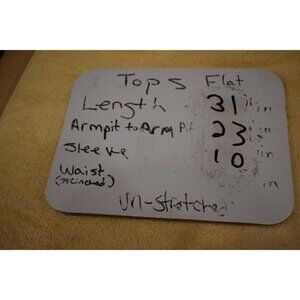 Tops Flat
Length 31 in
Armpit to Arm Pit 23 in
Sleeve 10 in
Waist in
(if cinched)
Un-Stretched